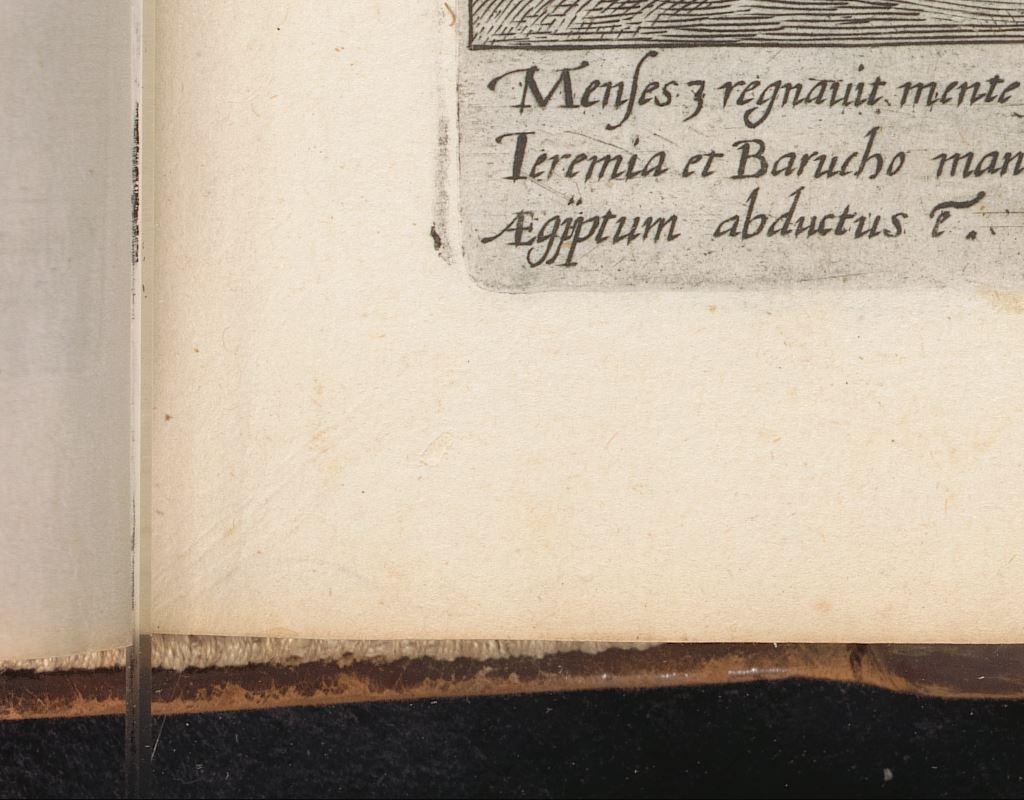 Menſes 3 regnauit mente
Ieremia et Barucho man
Ægÿptum abductus ē.